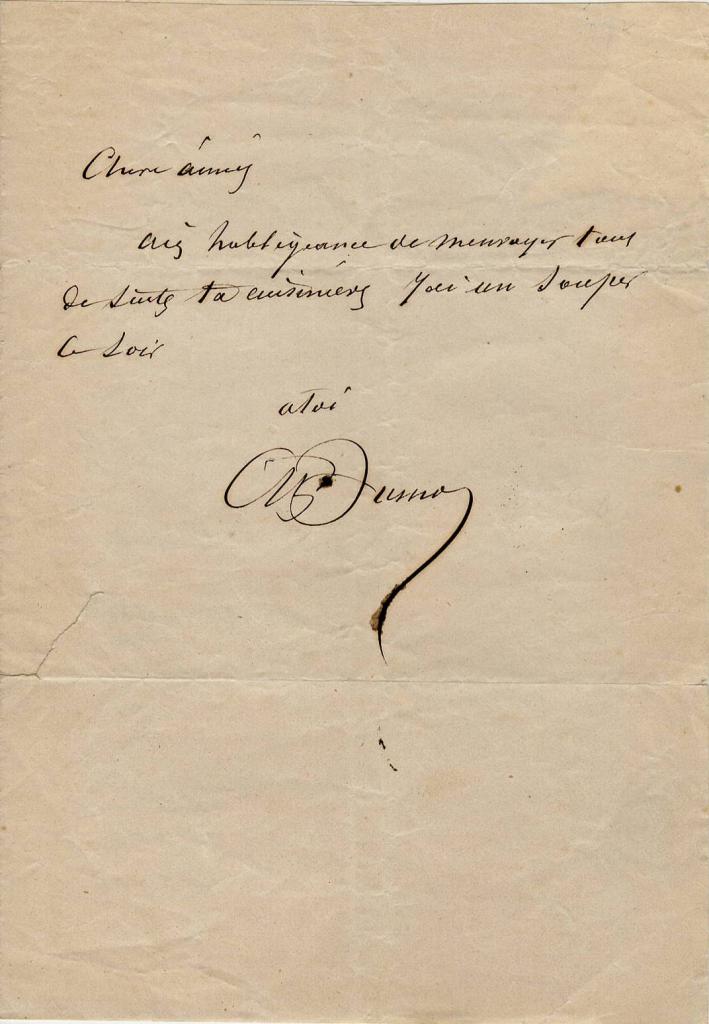 Chere amie
aie hobligeance de menvoyer tout
de suite ta cuisiniere J'ai un souper
ce soir
a toi
Dumas